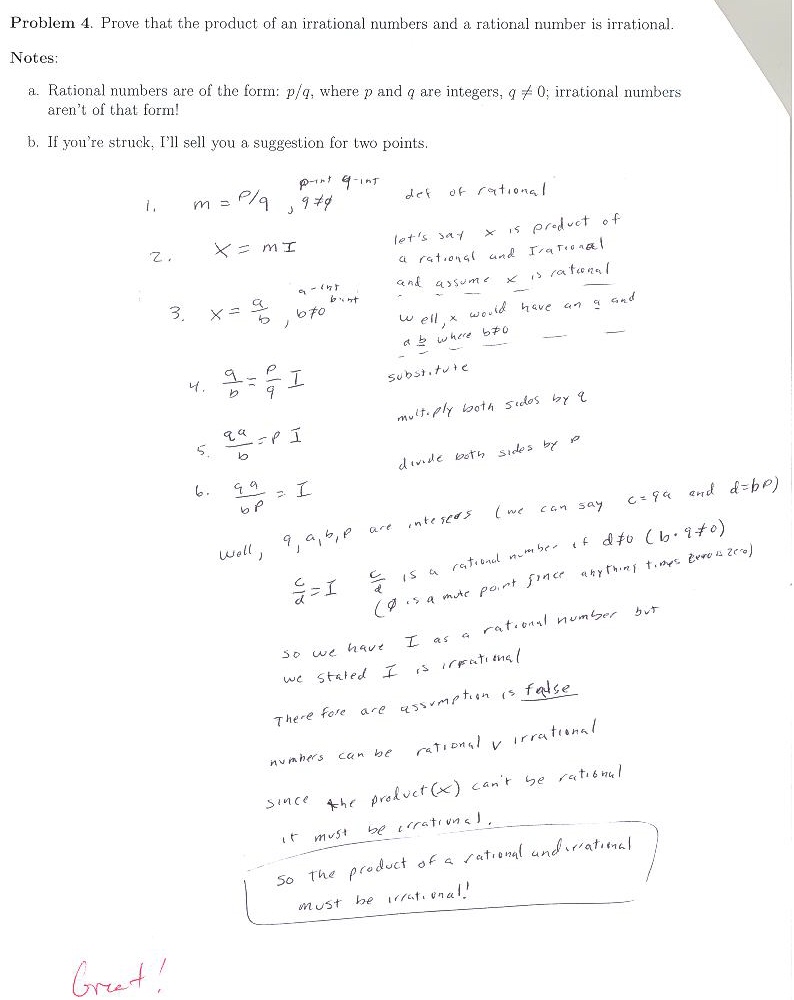 Problem 4. Prove that the product of an irrational numbers and a rational number is irrational.
Notes:
a. Rational numbers are of the form: p/q, where p and q are integers, q ≠ 0; irrational numbers
aren't of that form!
b. If you're struck, I'll sell you a suggestion for two points.
1. m = p/q , p-int q-int q≠0 def of rational
2. x = mI let's say x is product of
a rational and Irational
and assume x is rational
3. x = a/b , a-int b-int b≠0 well, x would have an a and
a b where b≠0
4. a/b = p/q I substitute
5. qa/b = p I multiply both sides by q
6. qa/bp = I divide both sides by p
Well, q, a, b, p are integers (we can say c=qa and d=bp)
c/d = I c/d is a rational number if d≠0 (b·q≠0)
(0 is a mute point since anything times zero is zero)
so we have I as a rational number but
we stated I is irrational
There fore are assumption is false
numbers can be rational v irrational
since the product (x) can't be rational
it must be irrational.
So the product of a rational and irrational
must be irrational!
Great!